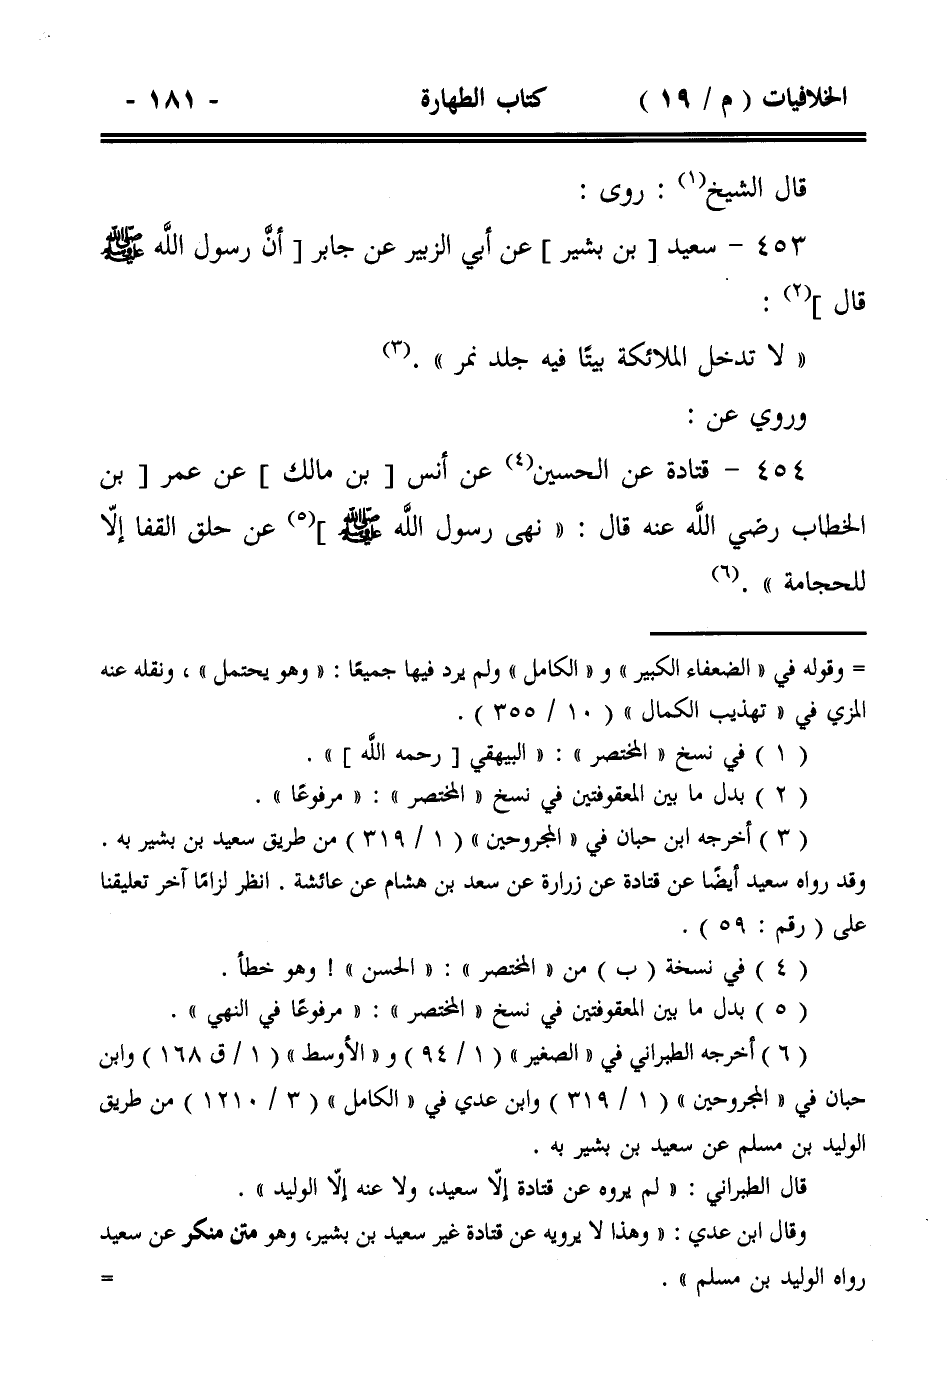 الخلافيات ( م / ١٩ ) كتاب الطهارة - ١٨١ -
قال الشيخ(١) : روى :
٤٥٣ - سعيد [ بن بشير ] عن أبي الزبير عن جابر [ أنَّ رسول اللَّه ﷺ
قال ](٢) :
« لا تدخل الملائكة بيتًا فيه جلد نمر » .(٣)
وروي عن :
٤٥٤ - قتادة عن الحسين(٤) عن أنس [ بن مالك ] عن عمر [ بن
الخطاب رضي اللَّه عنه قال : « نهى رسول اللَّه ﷺ ](٥) عن حلق القفا إلّا
للحجامة » .(٦)
= وقوله في « الضعفاء الكبير » و « الكامل » ولم يرد فيها جميعًا : « وهو يحتمل » ، ونقله عنه
المزي في « تهذيب الكمال » ( ١٠ / ٣٥٥ ) .
( ١ ) في نسخ « المختصر » : « البيهقي [ رحمه اللَّه ] » .
( ٢ ) بدل ما بين المعقوفتين في نسخ « المختصر » : « مرفوعًا » .
( ٣ ) أخرجه ابن حبان في « المجروحين » ( ١ / ٣١٩ ) من طريق سعيد بن بشير به .
وقد رواه سعيد أيضًا عن قتادة عن زرارة عن سعد بن هشام عن عائشة . انظر لزامًا آخر تعليقنا
على ( رقم : ٥٩ ) .
( ٤ ) في نسخة ( ب ) من « المختصر » : « الحسن » ! وهو خطأ .
( ٥ ) بدل ما بين المعقوفتين في نسخ « المختصر » : « مرفوعًا في النهي » .
( ٦ ) أخرجه الطبراني في « الصغير » ( ١ / ٩٤ ) و « الأوسط » ( ١ / ق ١٦٨ ) وابن
حبان في « المجروحين » ( ١ / ٣١٩ ) وابن عدي في « الكامل » ( ٣ / ١٢١٠ ) من طريق
الوليد بن مسلم عن سعيد بن بشير به .
قال الطبراني : « لم يروه عن قتادة إلّا سعيد، ولا عنه إلّا الوليد » .
وقال ابن عدي : « وهذا لا يرويه عن قتادة غير سعيد بن بشير، وهو متن منكر عن سعيد
رواه الوليد بن مسلم » . =